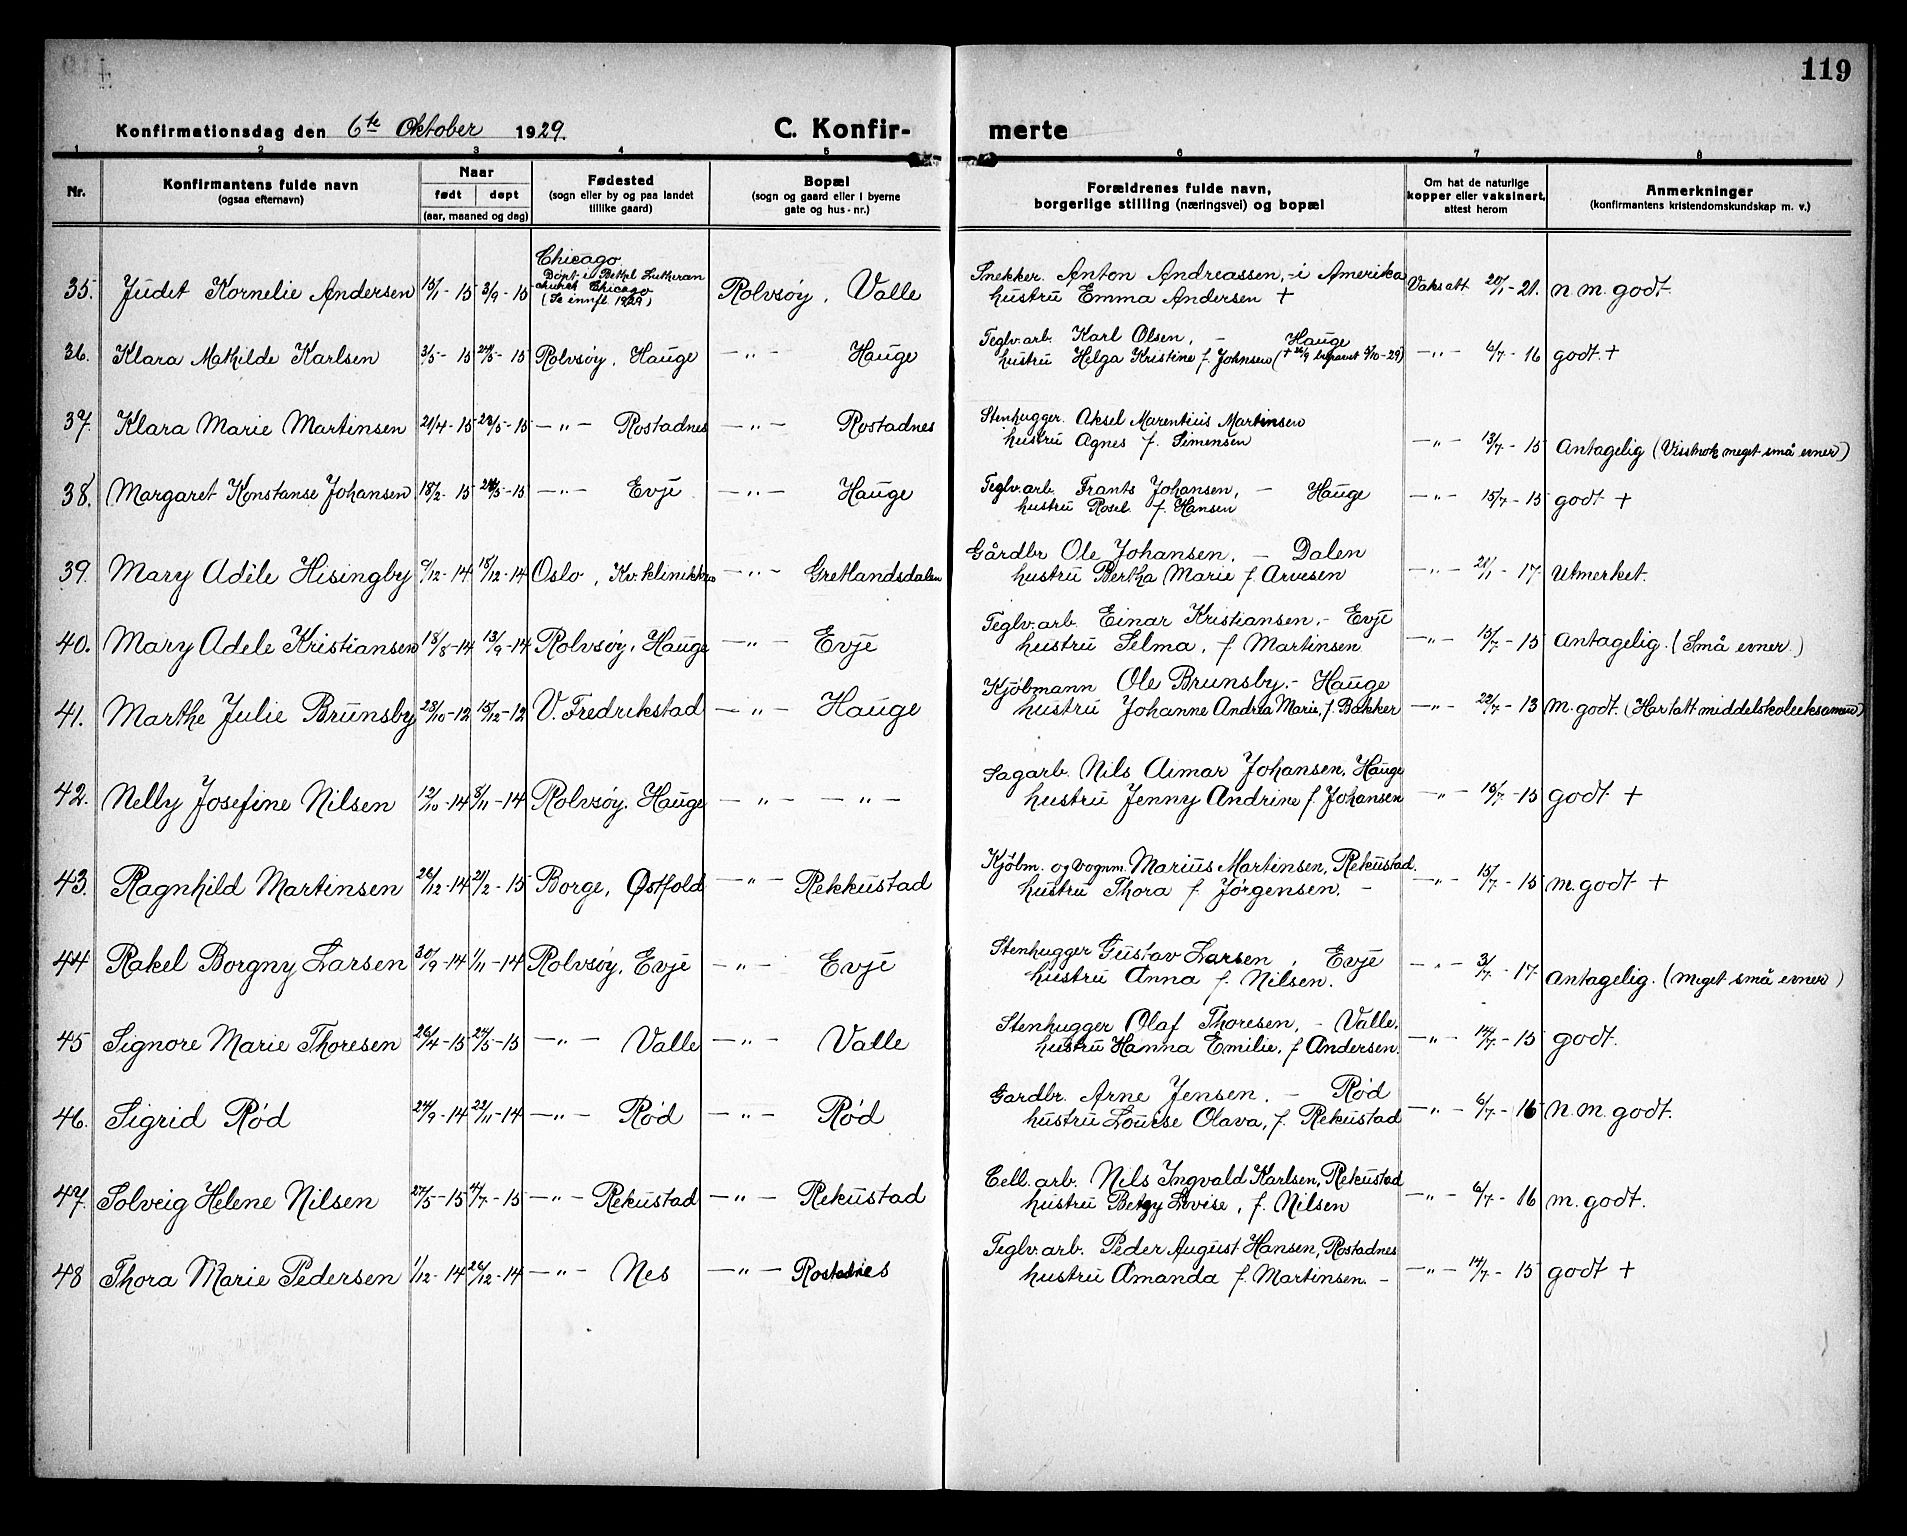 119
Konfirmationsdag den 6te Oktober 1929.
C. Konfir- merte
1 2 3 4 5 6 7 8
Nr.
Konfirmantens fulde navn
(ogsaa efternavn)
Naar
født døpt
(aar, maaned og dag)
Fødested
(sogn eller by og paa landet
tillike gaard)
Bopæl
(sogn og gaard eller i byerne
gate og hus-nr.)
Forældrenes fulde navn,
borgerlige stilling (næringsvei) og bopæl
Om hat de naturlige
kopper eller vaksinert,
attest herom
Anmerkninger
(konfirmantens kristendomskundskap m. v.)
Chicago.
Döpt i Bethel Lutheran
church Chicago
(Se innfl. 1929)
35. Judit Kornelie Andersen 15/1-15 3/9-15 Rolvsøy, Valle
Snekker. Anton Andreassen, -i Amerika
hustru Emma Andersen +
Vaks att 20/1-21. n. m. godt.
36. Klara Mathilde Karlsen 3/3-15 24/5-15 Rolvsøy, Hauge -"- Hauge
Teglv. arb. Karl Olsen, - Hauge
hustru Helga Kristine f. Johnsen (+ 26/9 begravet 3/10-29)
-"- 6/7-16 godt. +
37. Klara Marie Martinsen 21/4-15 23/5-15 -"- Rostadnes -"- Rostadnes
Stenhugger. Aksel Marentius Martinsen
hustru Agnes f. Simensen
-"- 13/7-15 Antagelig (Visstnok meget små evner)
38. Margaret Konstanse Johansen 18/2-15 24/5-15 -"- Evje -"- Hauge
Teglv. arb. Frants Johansen, - Hauge
hustru Rosel. f. Hansen
-"- 15/7-15 godt +
39. Mary Adèle Hisingby 9/12-14 18/12-14 Oslo, Kv. klinikken -"- Gretlandsdalen
Gårdbr Ole Johansen, - Dalen
hustru Bertha Marie f. Arvesen
-"- 21/1-17. Utmerket.
40. Mary Adele Kristiansen 18/8-14 13/9-14 Rolvsøy, Hauge -"- Evje
Teglv. arb. Einar Kristiansen. - Evje
hustru Selma, f. Martinsen
-"- 15/7-15 Antagelig. (Små evner.)
41. Marthe Julie Brunsby 23/10-12 15/12-12 V. Fredrikstad -"- Hauge
Kjöbmann Ole Brunsby. - Hauge
hustru Johanne Andrea Marie, f. Bakker
-"- 22/7-13 M. godt. (Har tatt middelskoleeksamen)
42. Nelly Josefine Nilsen 12/10-14 8/11-14 Rolvsøy, Hauge -"- -"-
Sagarb. Nils Aimar Johansen, Hauge
hustru Jenny Andrine f. Johansen
-"- 15/7-15 godt +
43. Ragnhild Martinsen 26/12-14 21/2-15 Borge, Østfold -"- Rekkustad
Kjöbm. og vognm. Marius Martinsen, Rekustad.
hustru Thora f. Jørgensen. -
-"- 15/7-15 m. godt +
44 Rakel Borgny Larsen 30/9-14 1/11-14 Rolvsøy, Evje -"- Evje
Stenhugger Gustav Larsen, Evje
hustru Anna f. Nilsen.
-"- 3/7-17. Antagelig. (Meget små evner)
45 Signore Marie Thoresen 26/4-15 24/5-15 -"- Valle -"- Valle
Stenhugger Olaf Thoresen, - Valle.
hustru Hanna Emilie, f Andersen.
-"- 14/7-15 godt.
46. Sigrid Rød 24/9-14 22/11-14 -"- Rød -"- Rød
Gardbr. Arne Jensen. - Rød
hustru Louise Olava, f. Rekustad
-"- 6/7-16 n. m. godt.
47. Solveig Helene Nilsen 27/5-15 4/7-15 -"- Rekustad -"- Rekustad
Cell. arb. Nils Ingvald Karlsen, Rekustad
hustru Betzy Lovise, f. Nilsen
-"- 6/7-16 m. godt.
48 Thora Marie Pedersen 1/12-14 26/12-14 -"- Nes -"- Rostadnes
Teglv. arb. Peder August Hansen, Rostadnes
hustru Amanda f. Martinsen. -
-"- 14/7-15 godt +